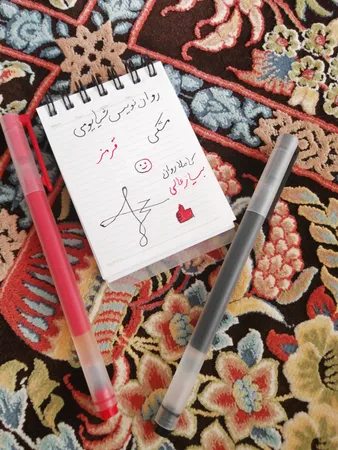 روان نویس شیایومی
مشکی
قرمز
کاملا روان
بسیار عالی